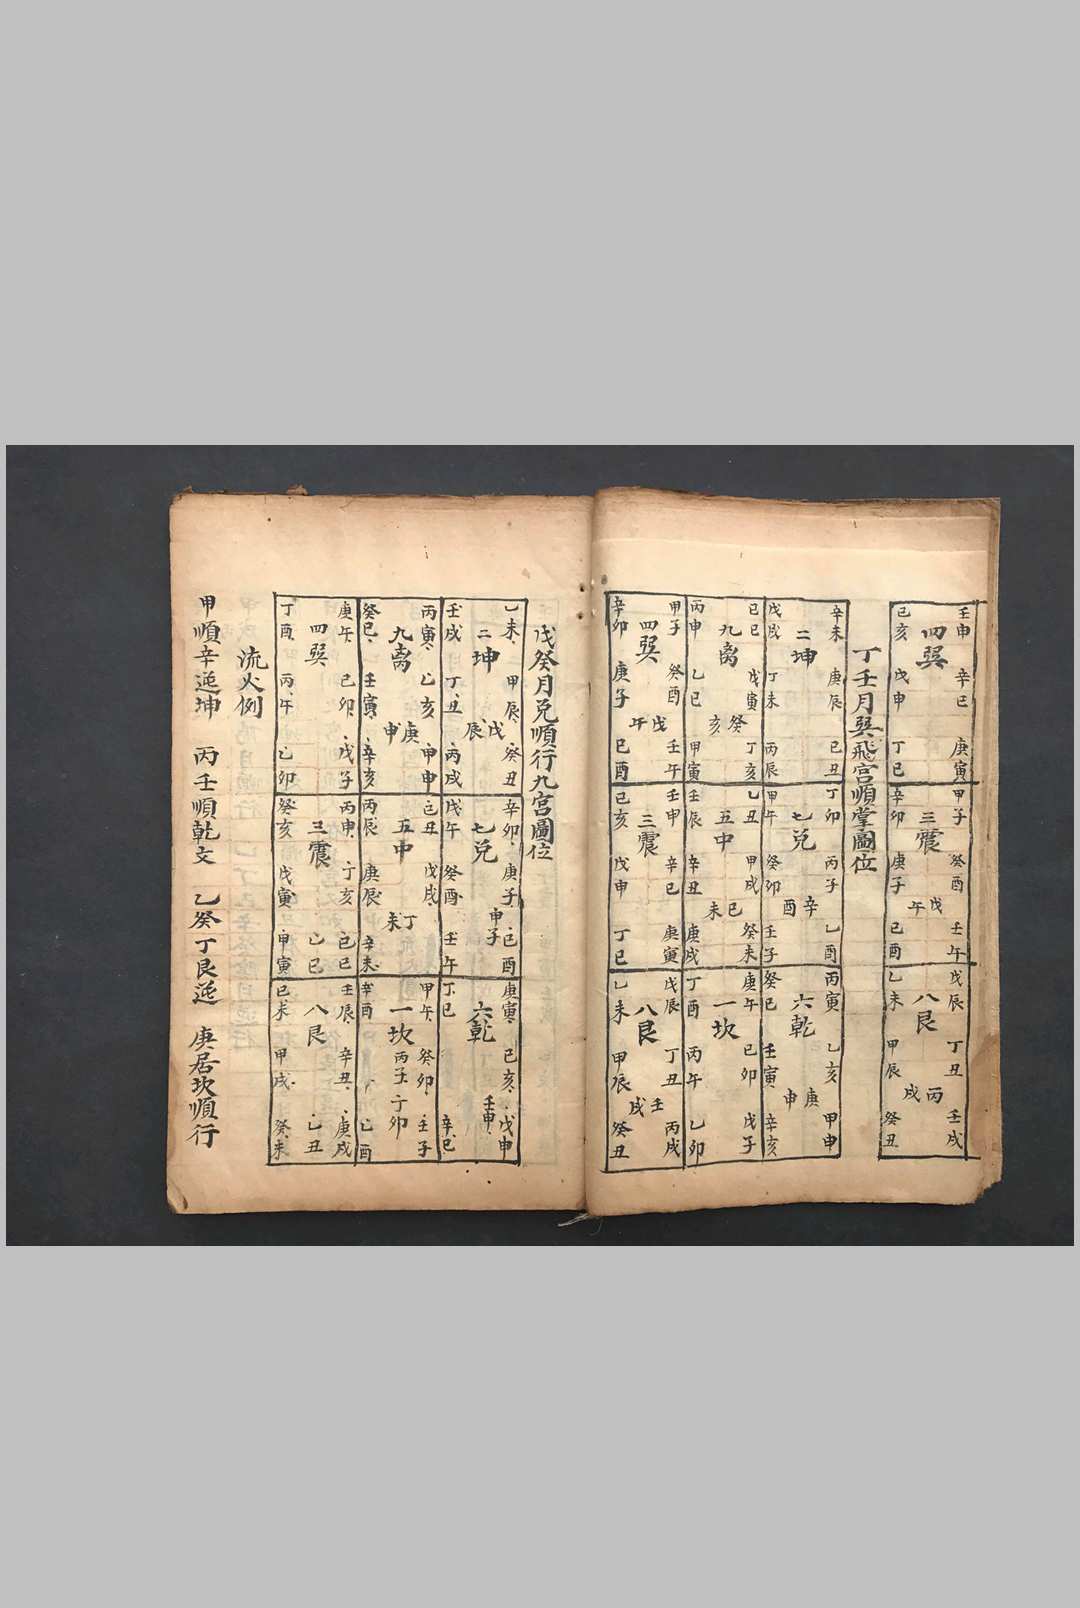 壬申 辛巳 庚寅
四巽
己亥 戊申 丁巳
甲子 癸酉 壬午
三震
戊午
辛卯 庚子 己酉
戊辰 丁丑 壬戌
八艮
丙戌
乙未 甲辰 癸丑
丁壬月巽飛宫順堂圖位
辛未 庚辰 己丑
二坤
戊戌 丁未 丙辰
丁卯 丙子 乙酉
七兑
辛酉
甲午 癸卯 壬子
丙寅 乙亥 甲申
六乾
庚申
癸巳 壬寅 辛亥
己巳 戊寅 丁亥
九离
癸亥
丙申 乙巳 甲寅
乙丑 甲戌 癸未
五中
己未
壬辰 辛丑 庚戌
庚午 己卯 戊子
一坎
丁酉 丙午 乙卯
甲子 癸酉 壬午
四巽
戊午
辛卯 庚子 己酉
壬申 辛巳 庚寅
三震
己亥 戊申 丁巳
戊辰 丁丑 丙戌
八艮
壬戌
乙未 甲辰 癸丑
戊癸月兑順行九宫圖位
乙未 甲辰 癸丑
二坤
戊辰
壬戌 丁丑 丙戌
辛卯 庚子 己酉
七兑
甲子
戊午 癸酉 壬午
庚寅 己亥 戊申
六乾
壬申
丁巳 辛巳
丙寅 乙亥 甲申
九离
庚申
癸巳 壬寅 辛亥
乙丑 戊戌
五中
丁未
丙辰 庚辰 辛未
甲午 癸卯 壬子
一坎
丙子 丁卯
辛酉 乙酉
庚午 己卯 戊子
四巽
丁酉 丙午 乙卯
丙申 丁亥 己巳
三震
乙巳
癸亥 戊寅 甲寅
壬辰 辛丑 庚戌
八艮
乙丑
己未 甲戌 癸未
流火例
甲順辛逆坤 丙壬順乾文 乙癸丁艮逆 庚居坎順行